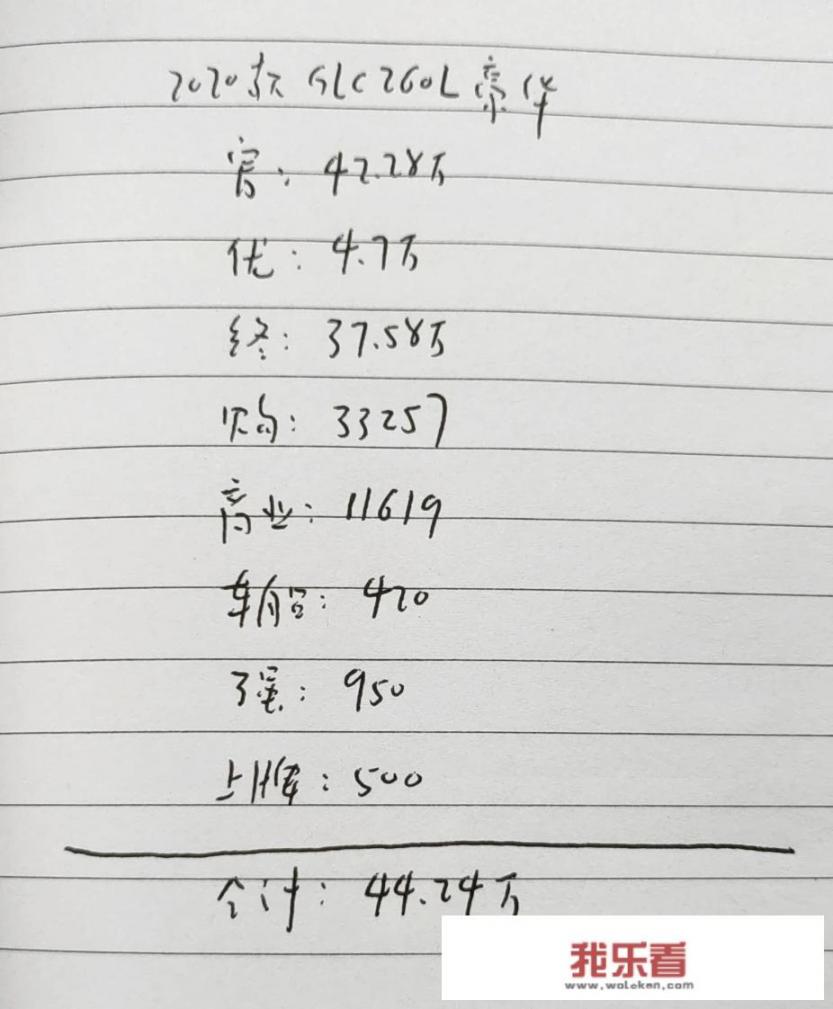 2020款 GLC260L 豪华
官: 42.28万
优: 4.7万
终: 37.58万
购: 33257
商业: 11619
车船: 420
强: 950
上牌: 500
合计: 44.24万
我乐看
www.woleken.com